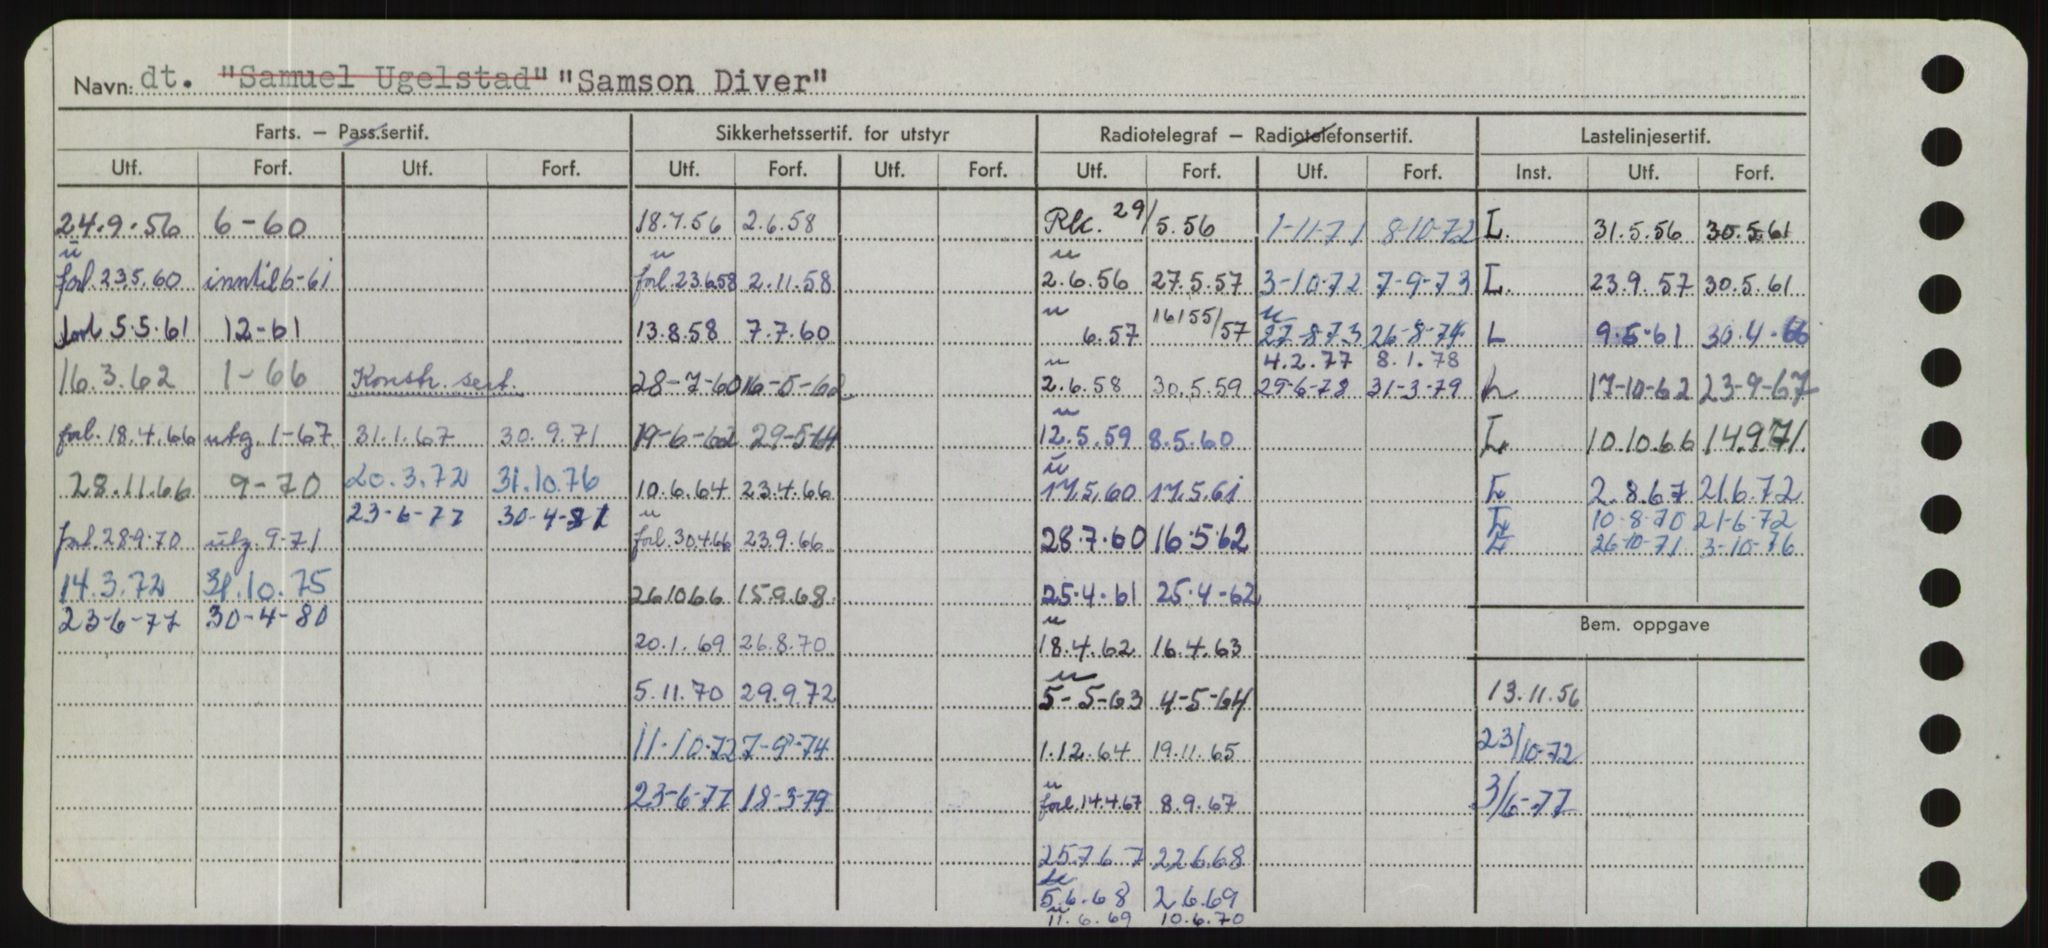 Navn: dt. "Samuel Ugelstad" "Samson Diver"
Farts. – Pass.sertif. Sikkerhetssertif. for utstyr Radiotelegraf – Radiotelefonsertif. Lastelinjesertif.
Utf. Forf. Utf. Forf. Utf. Forf. Utf. Forf. Utf. Forf. Utf. Forf. Inst. Utf. Forf.
24.9.56 6-60 18.7.56 2.6.58 Rk. 29/5.56 1-11-71 8-10-72 L. 31.5.56 30.5.61
u u u
forl. 23.5.60 inntil 6-61 forl. 23.6.58 2.11.58 2.6.56 27.5.57 3-10-72 7-9-73 L. 23.9.57 30.5.61
u u
forl 5.5.61 12-61 13.8.58 7.7.60 6.57 /57 27-8-73 26-8-74 L 9.5-61 30.4-66
u 4.2.77 8.1.78
16.3.62 1-66 Konstr. sert. 28-7-60 16-5-62 2.6.58 30.5.59 29-6-78 31-3-79 L 17-10-62 23-9-67
u
forl. 18.4.66 utg. 1-67 31.1.67 30.9.71 19-6-62 29-5-64 12.5.59 8.5.60 L. 10.10.66 14.9.71.
u
28.11.66 9-70 20.3.72 31.10.76 10.6.64 23.4.66 17.5.60 17.5.61 L 2.8.67 21.6.72
23-6-77 30-4-81 u L 10-8-70 21-6-72
forl. 28.9.70 utg. 9-71 forl. 30.4.66 23.9.66 28.7.60 16.5.62 L 26-10-71. 3-10-76
14.3.72 31.10.75 26.10.66 15.9.68. 25.4.61 25.4-62
23-6-77 30-4-80 u Bem. oppgave
20.1.69 26.8.70 18.4.62 16.4.63
u
5.11.70 29.9.72 5-5-63 4-5-64 13.11.56
11-10-72 7-9-74 1.12.64 19.11.65 23/10-72
u
23-6-77 18-3-79 forl. 14.4.67 8.9.67 3/6-77
25.7.67 22.6.68
u
5.6.68 2.6.69
u
11.6.69 10.6.70